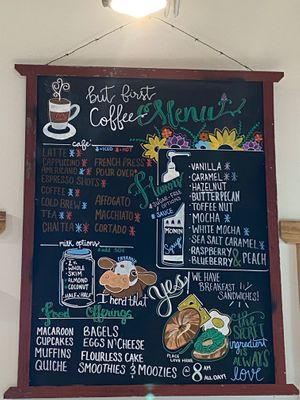 but first
Coffee Menu
cafe
*ICED *HOT
LATTE **
CAPPUCCINO *
AMERICANO **
ESPRESSO SHOTS
COFFEE *
COLD BREW *
TEA **
CHAI TEA **
FRENCH PRESS *
POUR OVER *
AFFOGATO
MACCHIATO *
CORTADO *
Flavors
* SUGAR FREE
OPTIONS
* SAUCE
MONIN
Syrup
VANILLA *
CARAMEL **
HAZELNUT
BUTTERPECAN
TOFFEE NUT
MOCHA *
WHITE MOCHA *
SEA SALT CARAMEL *
RASPBERRY
BLUEBERRY & PEACH
milk options
2%
WHOLE
SKIM
ALMOND
COCONUT
HALF & HALF
add .50¢
I herd that
yes
WE HAVE
BREAKFAST
SANDWICHES!
Food Offerings
MACAROON
CUPCAKES
MUFFINS
QUICHE
BAGELS
EGGS N' CHEESE
FLOURLESS CAKE
SMOOTHIES & MOOZIES
PLACE
LOVE HERE
@ 8 AM
ALL DAY!
the
SECRET
ingredient
is
ALWAYS
love